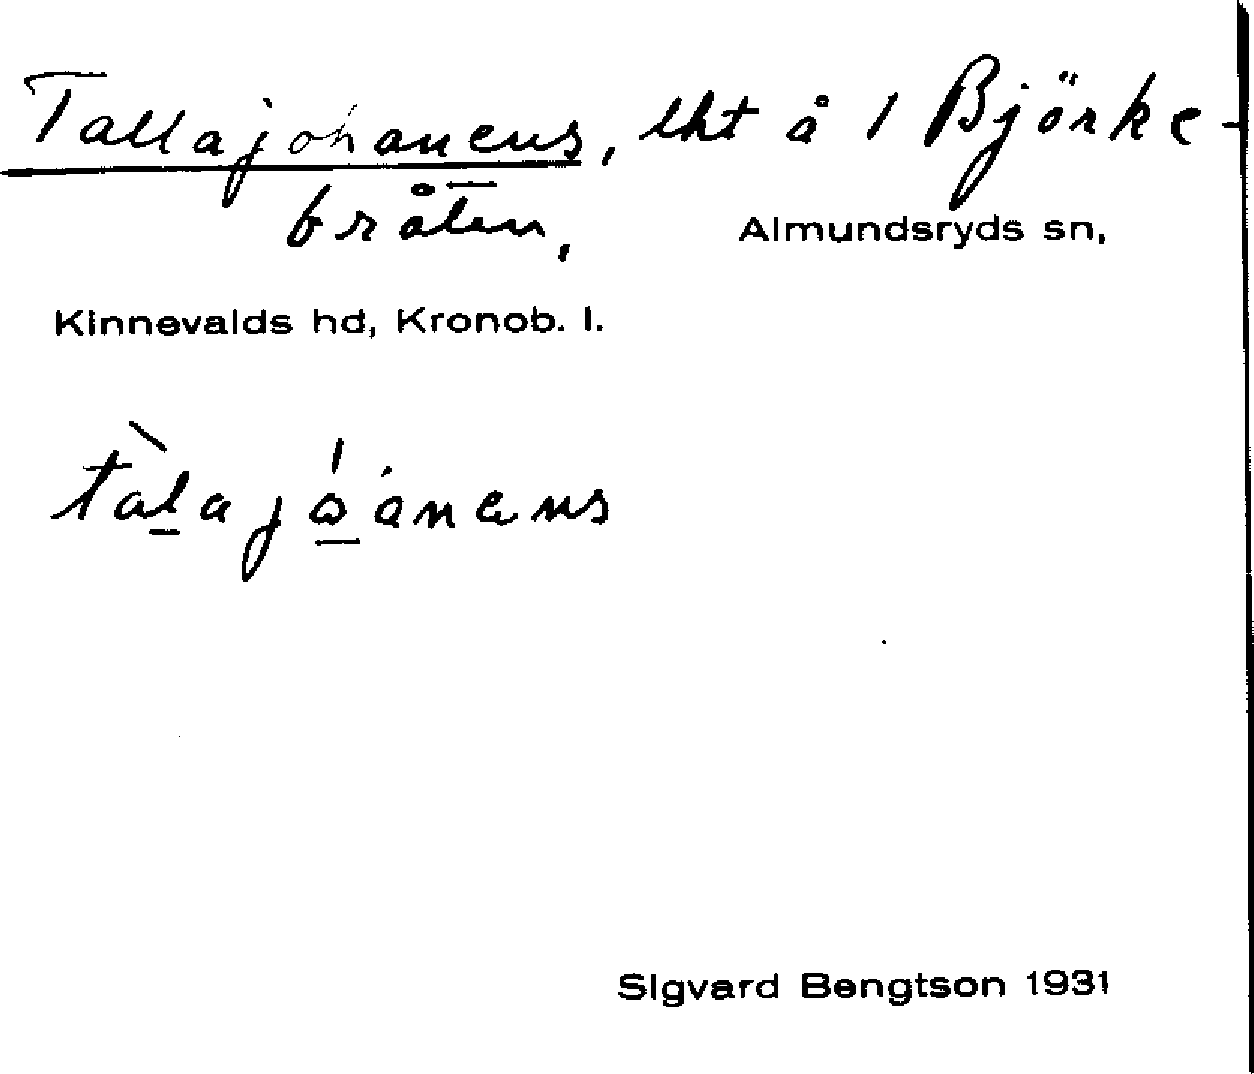 Tallajohanens, lht å 1 Björke-
bråten, Almundsryds sn,
Kinnevalds hd, Kronob. l.
talajoanens
Sigvard Bengtson 1931